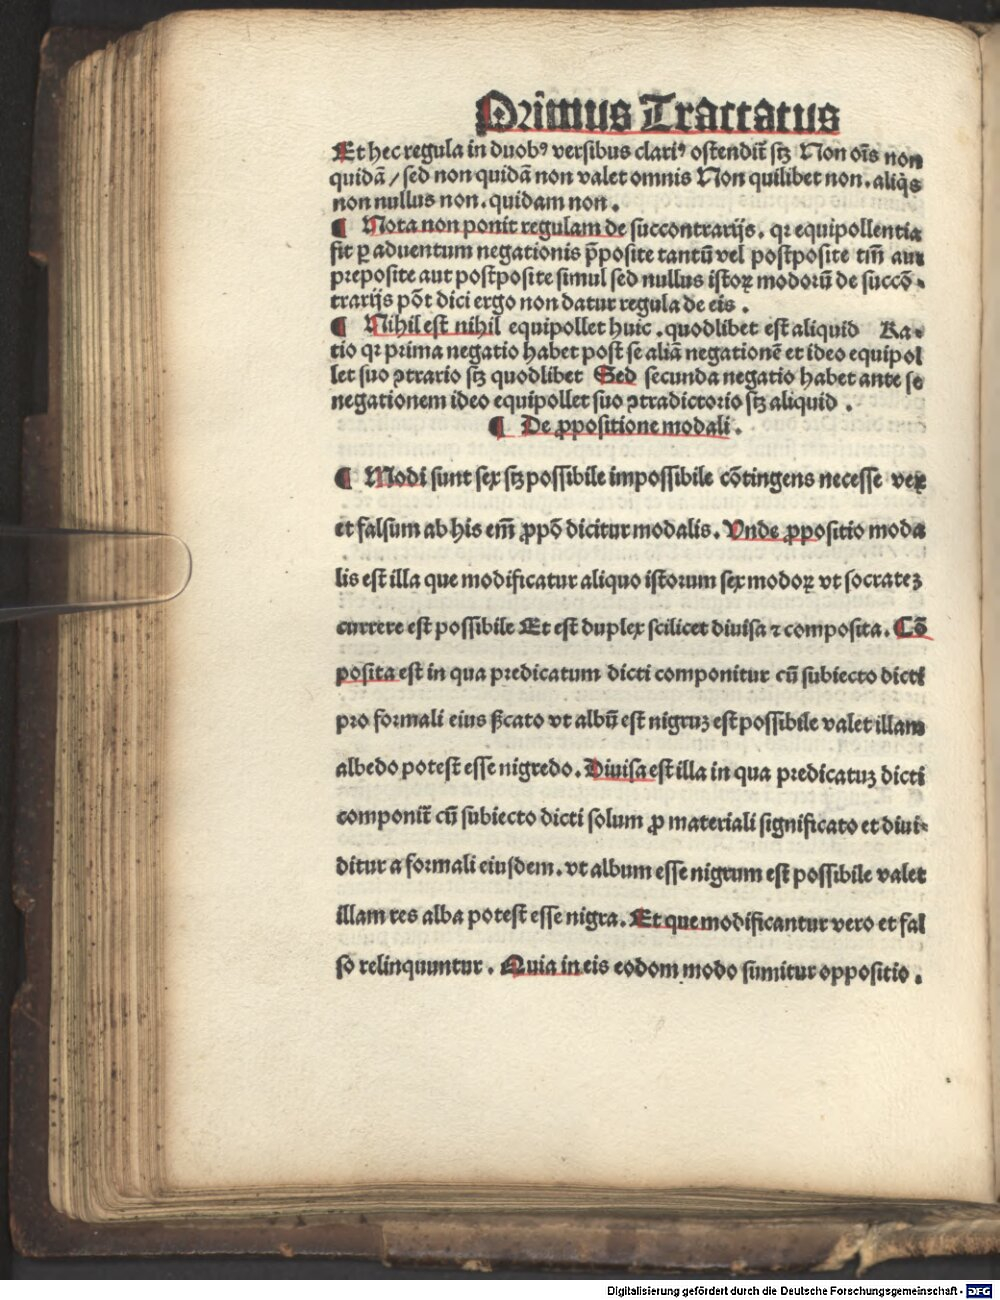 Prīmus Tractatus
Et hec regula in duobꝰ versibus clariꝰ ostendit̄ sꝫ Non oīs non
quidā / sed non quidā non valet omnis Non quilibet non. aliq̇s
non nullus non. quidam non.
¶ Nota non ponit regulam de succontrarijs. qꝛ equipollentia
fit ꝑ aduentum negationis p̄posite tantū vel postposite tm̄ aut
preposite aut postposite simul sed nullus istoꝝ modorū de succō-
trarijs pōt dici ergo non datur regula de eis.
¶ Nihil est nihil equipollet huic. quodlibet est aliquid Ra-
tio qꝛ prima negatio habet post se aliā negationē et ideo equipol
let suo ꝯtrario sꝫ quodlibet Sed secunda negatio habet ante se
negationem ideo equipollet suo ꝯtradictorio sꝫ aliquid.
¶ De ꝓpositione modali.
¶ Modi sunt sex sꝫ possibile impossibile cōtingens necesse veꝝ
et falsum ab his em̄ ꝓpō dicitur modalis. Vnde ꝓpositio moda
lis est illa que modificatur aliquo istorum sex modoꝝ vt socrateꝫ
currere est possibile Et est duplex scilicet diuisa ⁊ composita. Cō
posita est in qua predicatum dicti componitur cū subiecto dicti
pro formali eius ſ̄cato vt albū est nigruꝫ est possibile valet illam
albedo potest esse nigredo. Diuisa est illa in qua predicatuꝫ dicti
componit̄ cū subiecto dicti solum ꝓ materiali significato et diui-
ditur a formali eiusdem. vt album esse nigrum est possibile valet
illam res alba potest esse nigra. Et que modificantur vero et fal
so relinquuntur. Quia in eis eodom modo sumitur oppositio.
Digitalisierung gefördert durch die Deutsche Forschungsgemeinschaft - DFG